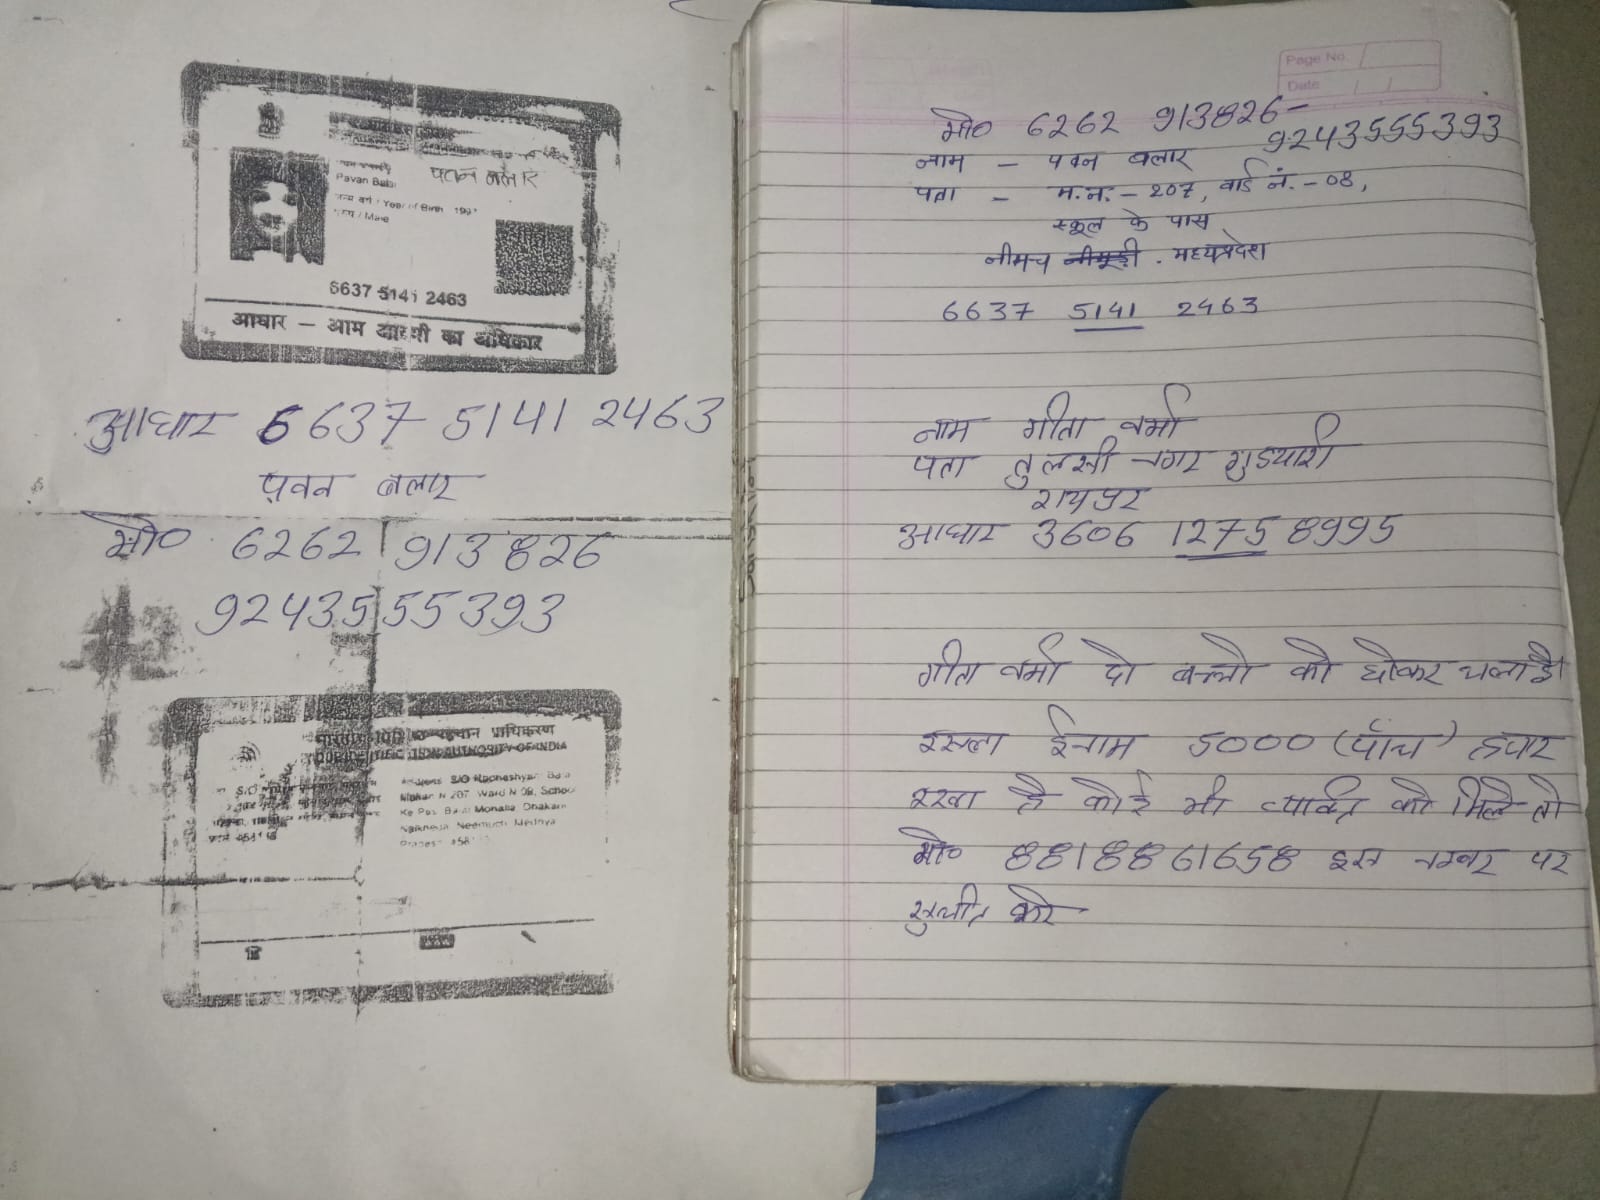 पवन बलार
Pavan Balai
जन्म वर्ष / Year of Birth
/ Male
6637 5141 2463
आधार – आम आदमी का अधिकार
आधार 6637 5141 2463
पवन बलार
मो० 6262 913826
9243555393
AUTHORITY OF INDIA
S/O
Address S/O
Makan N 207 Ward N 08, School
Ke Pas
Neemuch Madhya
Page No.
Date
मो० 6262 913826-
9243555393
नाम – पवन बलार
पता – म.न. – 207, वार्ड नं. – 08,
स्कूल के पास
नीमच . मध्यप्रदेश
6637 5141 2463
नाम गीता वर्मा
पता तुलसी नगर गुडयारी
रायपुर
आधार 3606 1275 8995
गीता वर्मा दो बच्चो को छोकर चला है।
इसला ईनाम 5000 (पाँच) हजार
रखा है कोई भी व्यक्ति को मिले तो
मो० 8818861658 इस नम्बर पर
सुचीत करे